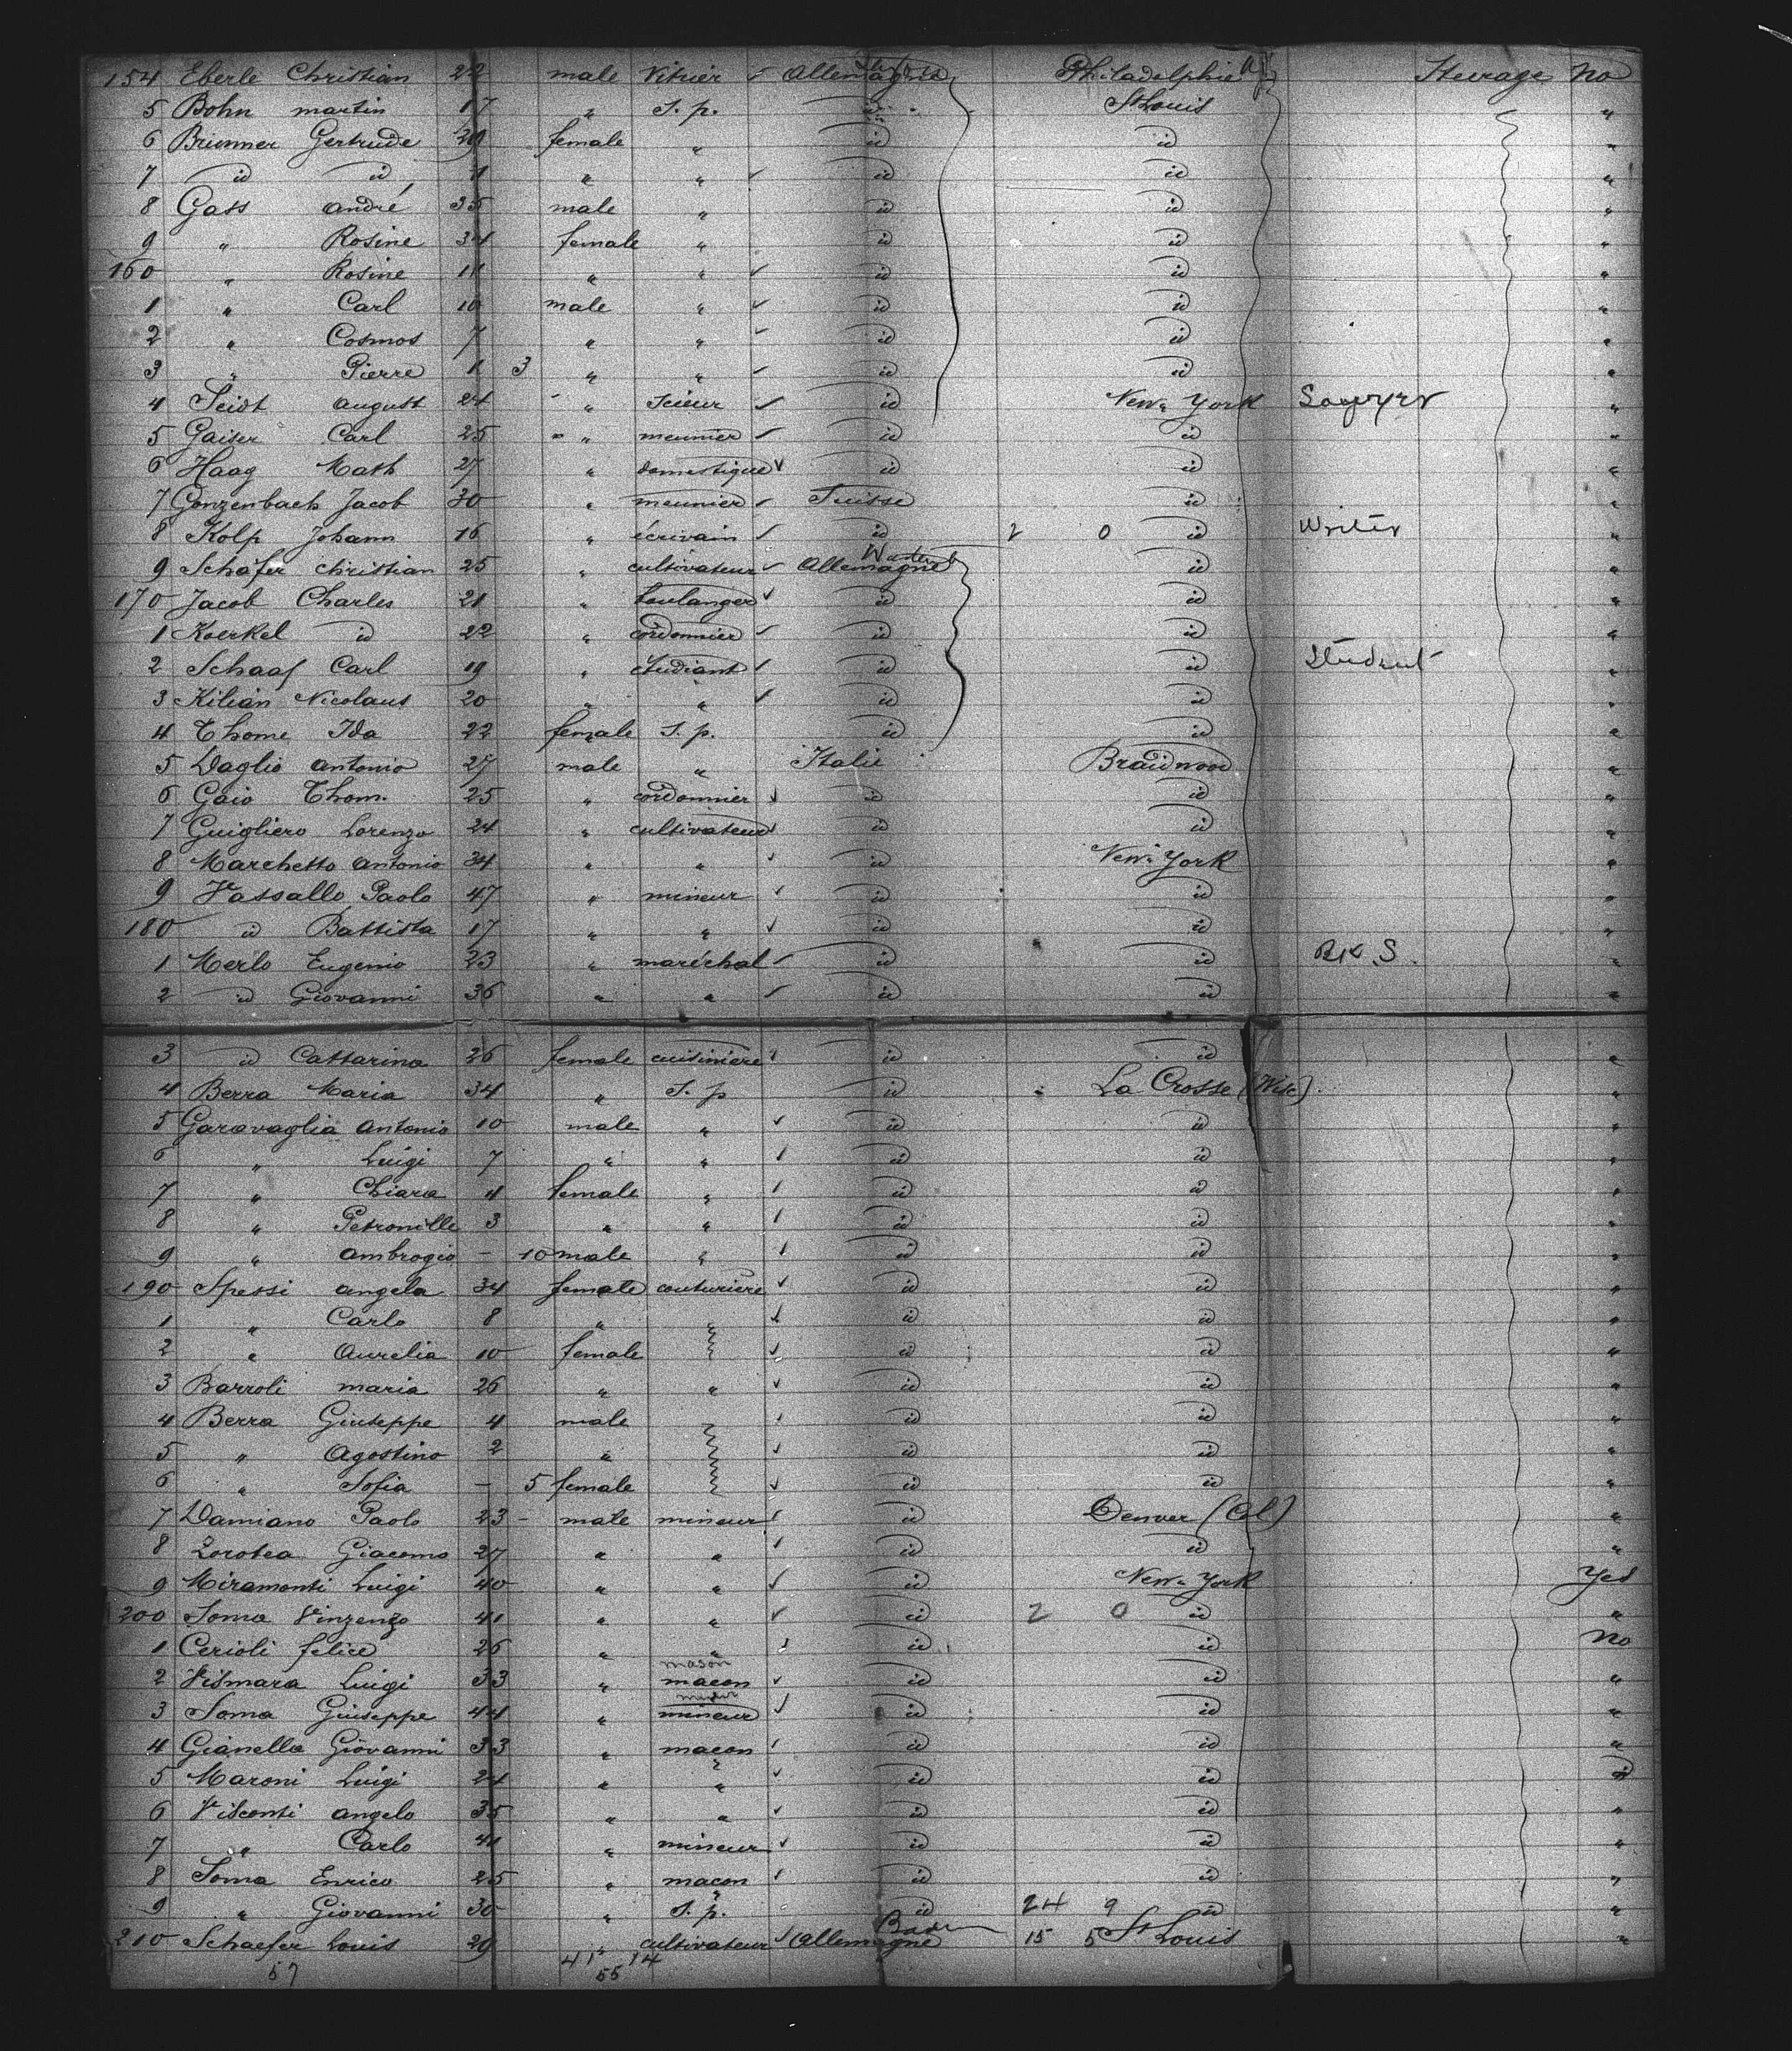 154 Eberle Christian 22 male Vitrier Allemagne Philadelphie Steerage No
5 Bohn martin 17 " S. p. " St Louis "
6 Brunner Gertrude 39 female " id id "
7 id id 1 " " id id "
8 Gass andré 35 male " id id "
9 " Rosine 34 female " id id "
160 " Rosine 11 " " id id "
1 " Carl 10 male " id id "
2 " Cosmos 7 " " id id "
3 " Pierre 1 3 " " id id "
4 Seidt august 24 " scieur id New-York Sawyer "
5 Gaiser Carl 25 " meunier id id "
6 Haag Math 27 " domestique id id "
7 Gonzenbach Jacob 30 " meunier Suisse id "
8 Kolp Johann 16 " écrivain id 2 0 id Writer "
9 Schäfer christian 25 " cultivateur Allemagne id "
170 Jacob Charles 21 " boulanger id id "
1 Koerkel id 22 " cordonnier id id "
2 Schaaf Carl 19 " étudiant id id Student "
3 Kilian Nicolaus 20 " " id id "
4 Thome Ida 22 female S. p. id id "
5 Daglio antonio 27 male " Italie Braidwood "
6 Gaio Thom. 25 " cordonnier id id "
7 Guigliero Lorenzo 24 " cultivateur id id "
8 Marchetto antonio 34 " " id New-York "
9 Vassallo Paolo 47 " mineur id id "
180 id Battista 17 " " id id "
1 Merlo Eugenio 23 " maréchal id id Bk. S. "
2 id Giovanni 36 " " id id "
3 id Cattarina 26 female cuisinière id id "
4 Berra Maria 34 " S. p id La Crosse (Wisc) "
5 Garavaglia antonio 10 male " id id "
6 " Luigi 7 " " id id "
7 " Chiara 4 female " id id "
8 " Petronille 3 " " id id "
9 " ambrogio - 10 male " id id "
190 Spessi angela 34 female couturière id id "
1 " Carlo 8 " " id id "
2 " Aurelia 10 female id id "
3 Barroli maria 26 " " id id "
4 Berra Giuseppe 4 male id id "
5 " Agostino 2 " id id "
6 " Sofia - 5 female id id "
7 Damiano Paolo 23 - male mineur id Denver (Col) "
8 Zorotea Giacomo 27 " " id id "
9 Miramonti Luigi 40 " " id New-York Yes
200 Soma Vinzenzo 41 " " id 2 0 id "
1 Cerioli felice 26 " " id id No
mason
2 Vismara Luigi 33 " macon id id "
miner
3 Soma Giuseppe 44 " mineur id id "
4 Gianella Giovanni 33 " macon id id "
5 Maroni Luigi 24 " " id id id
6 Visconti angelo 35 " " id id "
7 " Carlo 41 " mineur id id "
8 Soma Enrico 25 " macon id id "
9 " Giovanni 30 " S. p. id 24 9 id "
Baden
210 Schaefer Louis 29 " cultivateur Allemagne 15 5 St Louis "
41 14
57 55